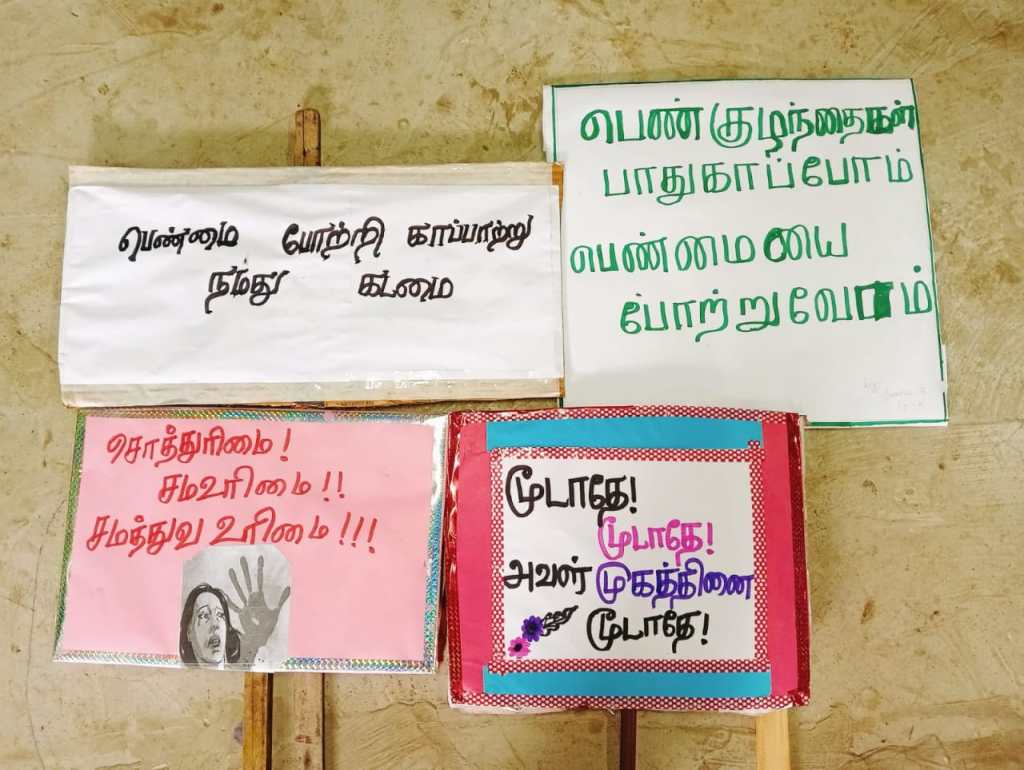 பெண்மை போற்றி காப்பாற்று
நமது கடமை
பெண் குழந்தைகள்
பாதுகாப்போம்
பெண்மையை
போற்றுவோம்
சொத்துரிமை!
சமஉரிமை!!
சமத்துவ உரிமை!!!
மூடாதே!
மூடாதே!
அவள் முகத்தினை
மூடாதே!